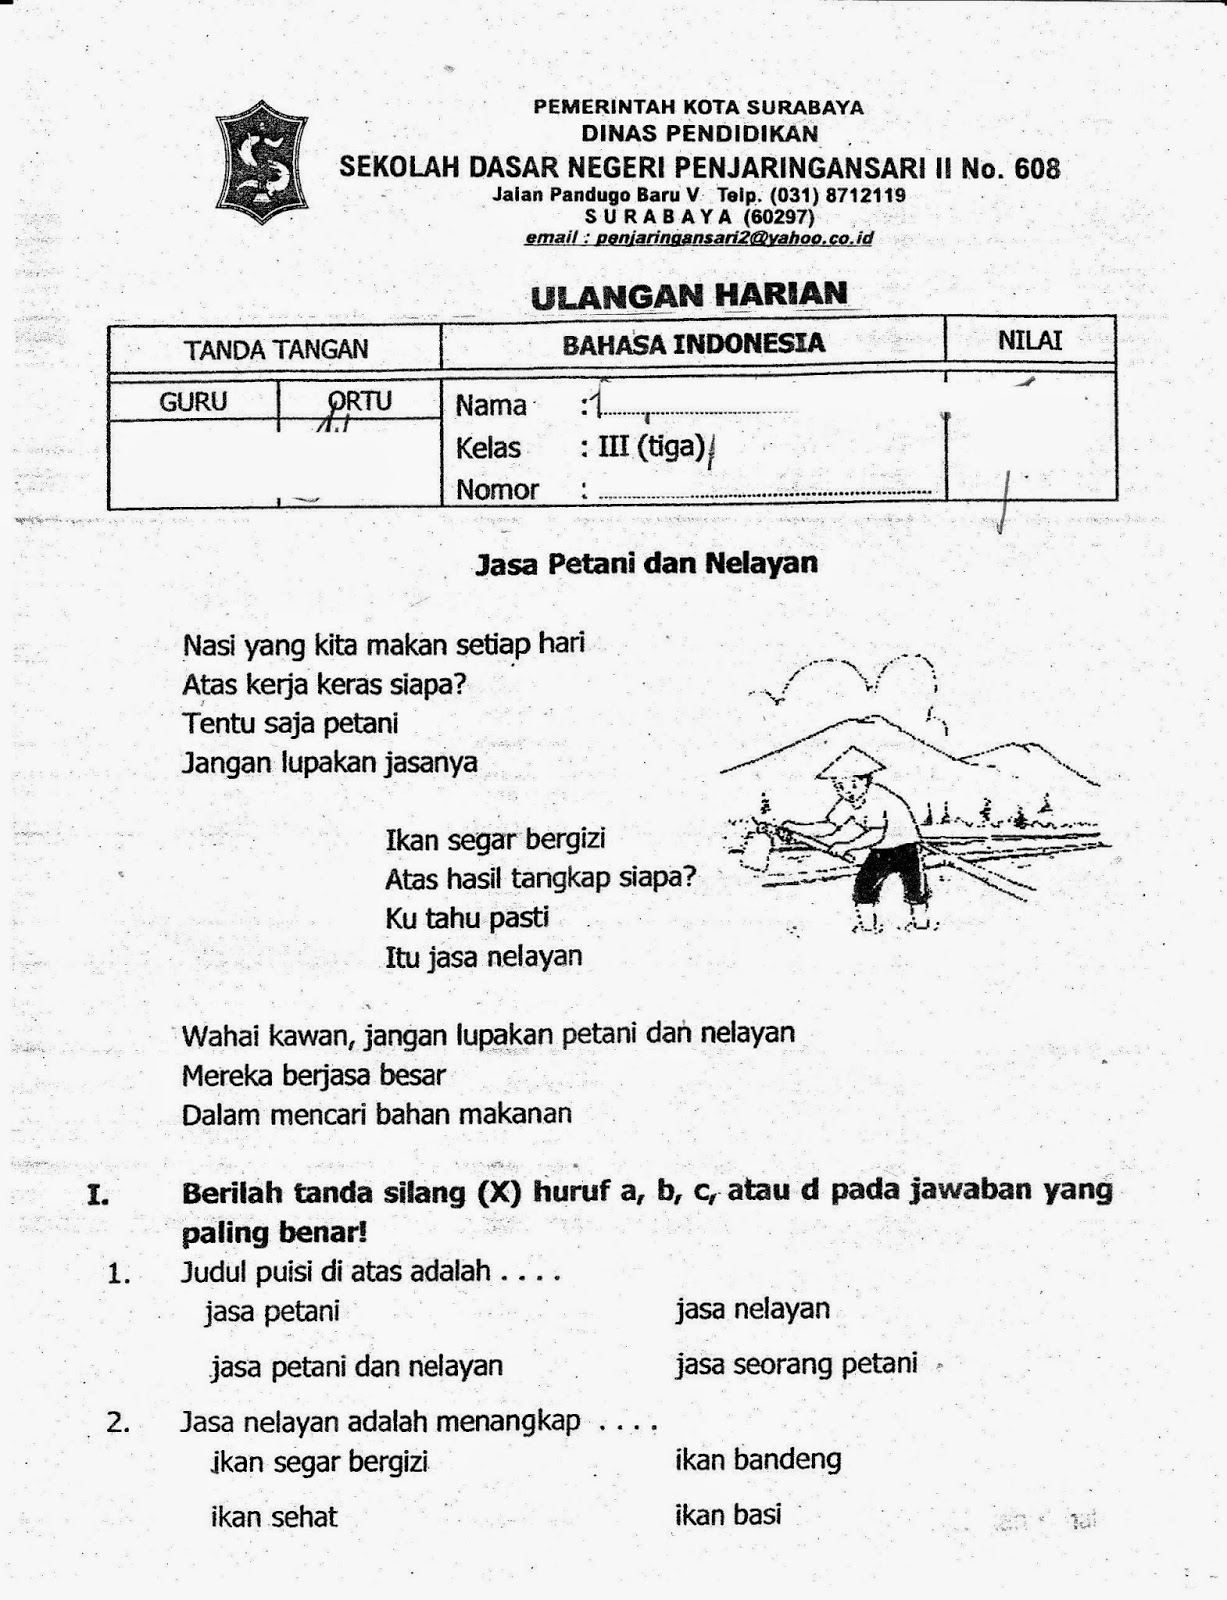 PEMERINTAH KOTA SURABAYA
DINAS PENDIDIKAN
SEKOLAH DASAR NEGERI PENJARINGANSARI II No. 608
Jalan Pandugo Baru V Telp. (031) 8712119
S U R A B A Y A (60297)
email : penjaringansari2@yahoo.co.id
ULANGAN HARIAN
TANDA TANGAN BAHASA INDONESIA NILAI
GURU ORTU Nama :
Kelas : III (tiga)
Nomor :
Jasa Petani dan Nelayan
Nasi yang kita makan setiap hari
Atas kerja keras siapa?
Tentu saja petani
Jangan lupakan jasanya
Ikan segar bergizi
Atas hasil tangkap siapa?
Ku tahu pasti
Itu jasa nelayan
Wahai kawan, jangan lupakan petani dan nelayan
Mereka berjasa besar
Dalam mencari bahan makanan
I. Berilah tanda silang (X) huruf a, b, c, atau d pada jawaban yang
paling benar!
1. Judul puisi di atas adalah . . . .
jasa petani jasa nelayan
jasa petani dan nelayan jasa seorang petani
2. Jasa nelayan adalah menangkap . . . .
ikan segar bergizi ikan bandeng
ikan sehat ikan basi